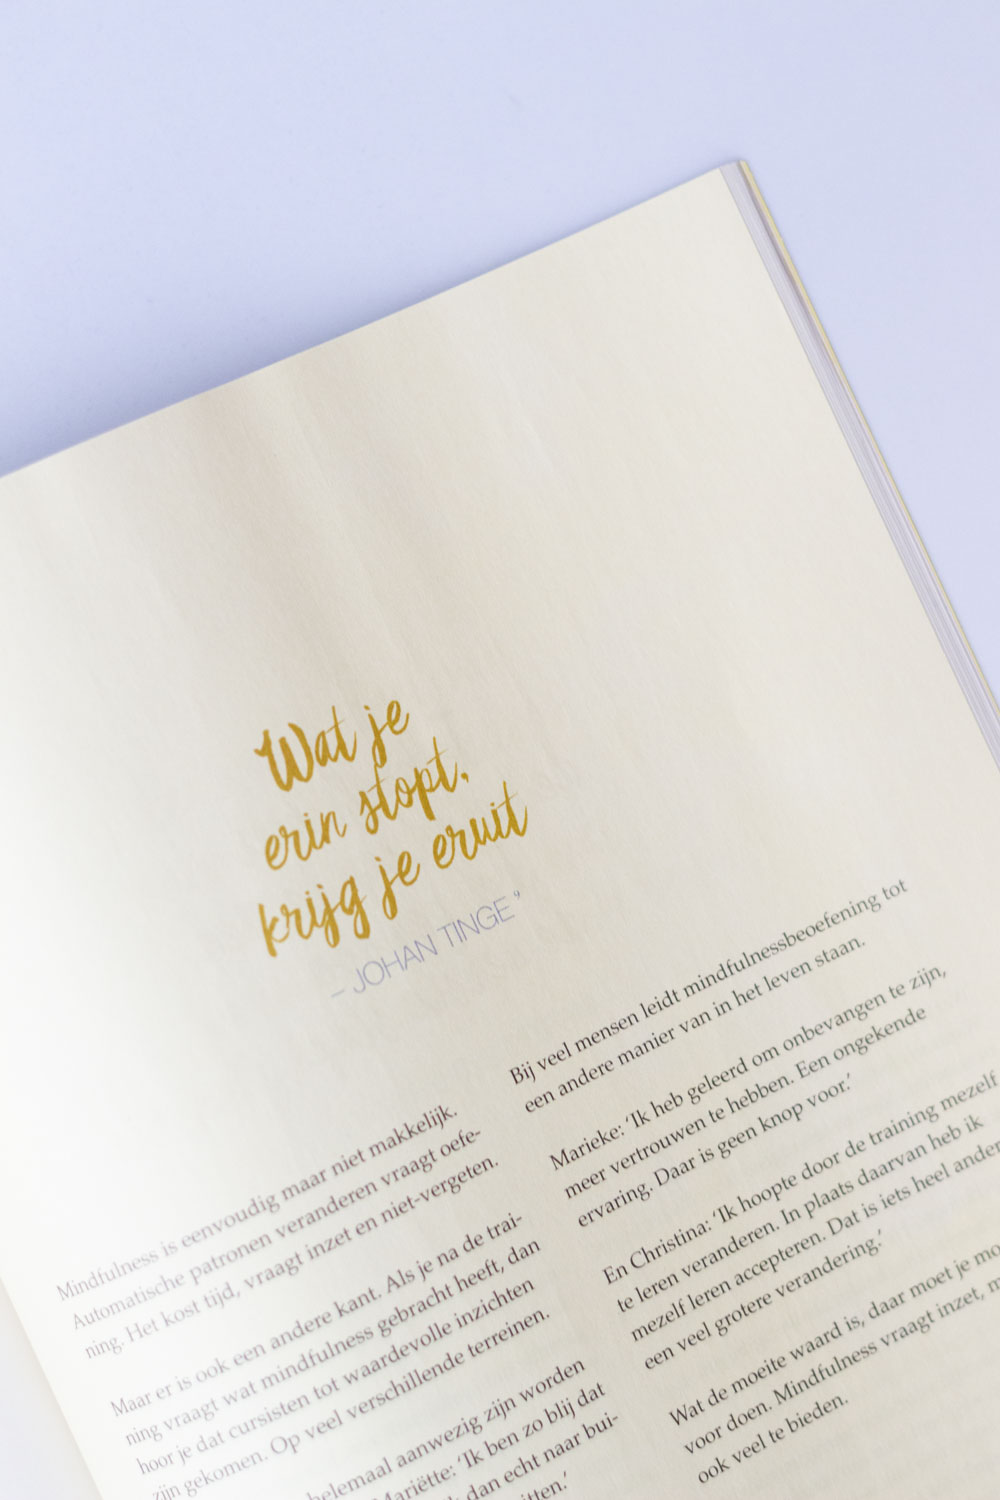 Wat je
erin stopt,
krijg je eruit
– JOHAN TINGE ’
Mindfulness is eenvoudig maar niet makkelijk.
Automatische patronen veranderen vraagt oefe-
ning. Het kost tijd, vraagt inzet en niet-vergeten.
Maar er is ook een andere kant. Als je na de trai-
ning vraagt wat mindfulness gebracht heeft, dan
hoor je dat cursisten tot waardevolle inzichten
zijn gekomen. Op veel verschillende terreinen.
helemaal aanwezig zijn worden
Mariëtte: ‘Ik ben zo blij dat
dan echt naar bui-
Bij veel mensen leidt mindfulnessbeoefening tot
een andere manier van in het leven staan.
Marieke: ‘Ik heb geleerd om onbevangen te zijn,
meer vertrouwen te hebben. Een ongekende
ervaring. Daar is geen knop voor.’
En Christina: ‘Ik hoopte door de training mezelf
te leren veranderen. In plaats daarvan heb ik
mezelf leren accepteren. Dat is iets heel ander
een veel grotere verandering.’
Wat de moeite waard is, daar moet je mo
voor doen. Mindfulness vraagt inzet, m
ook veel te bieden.